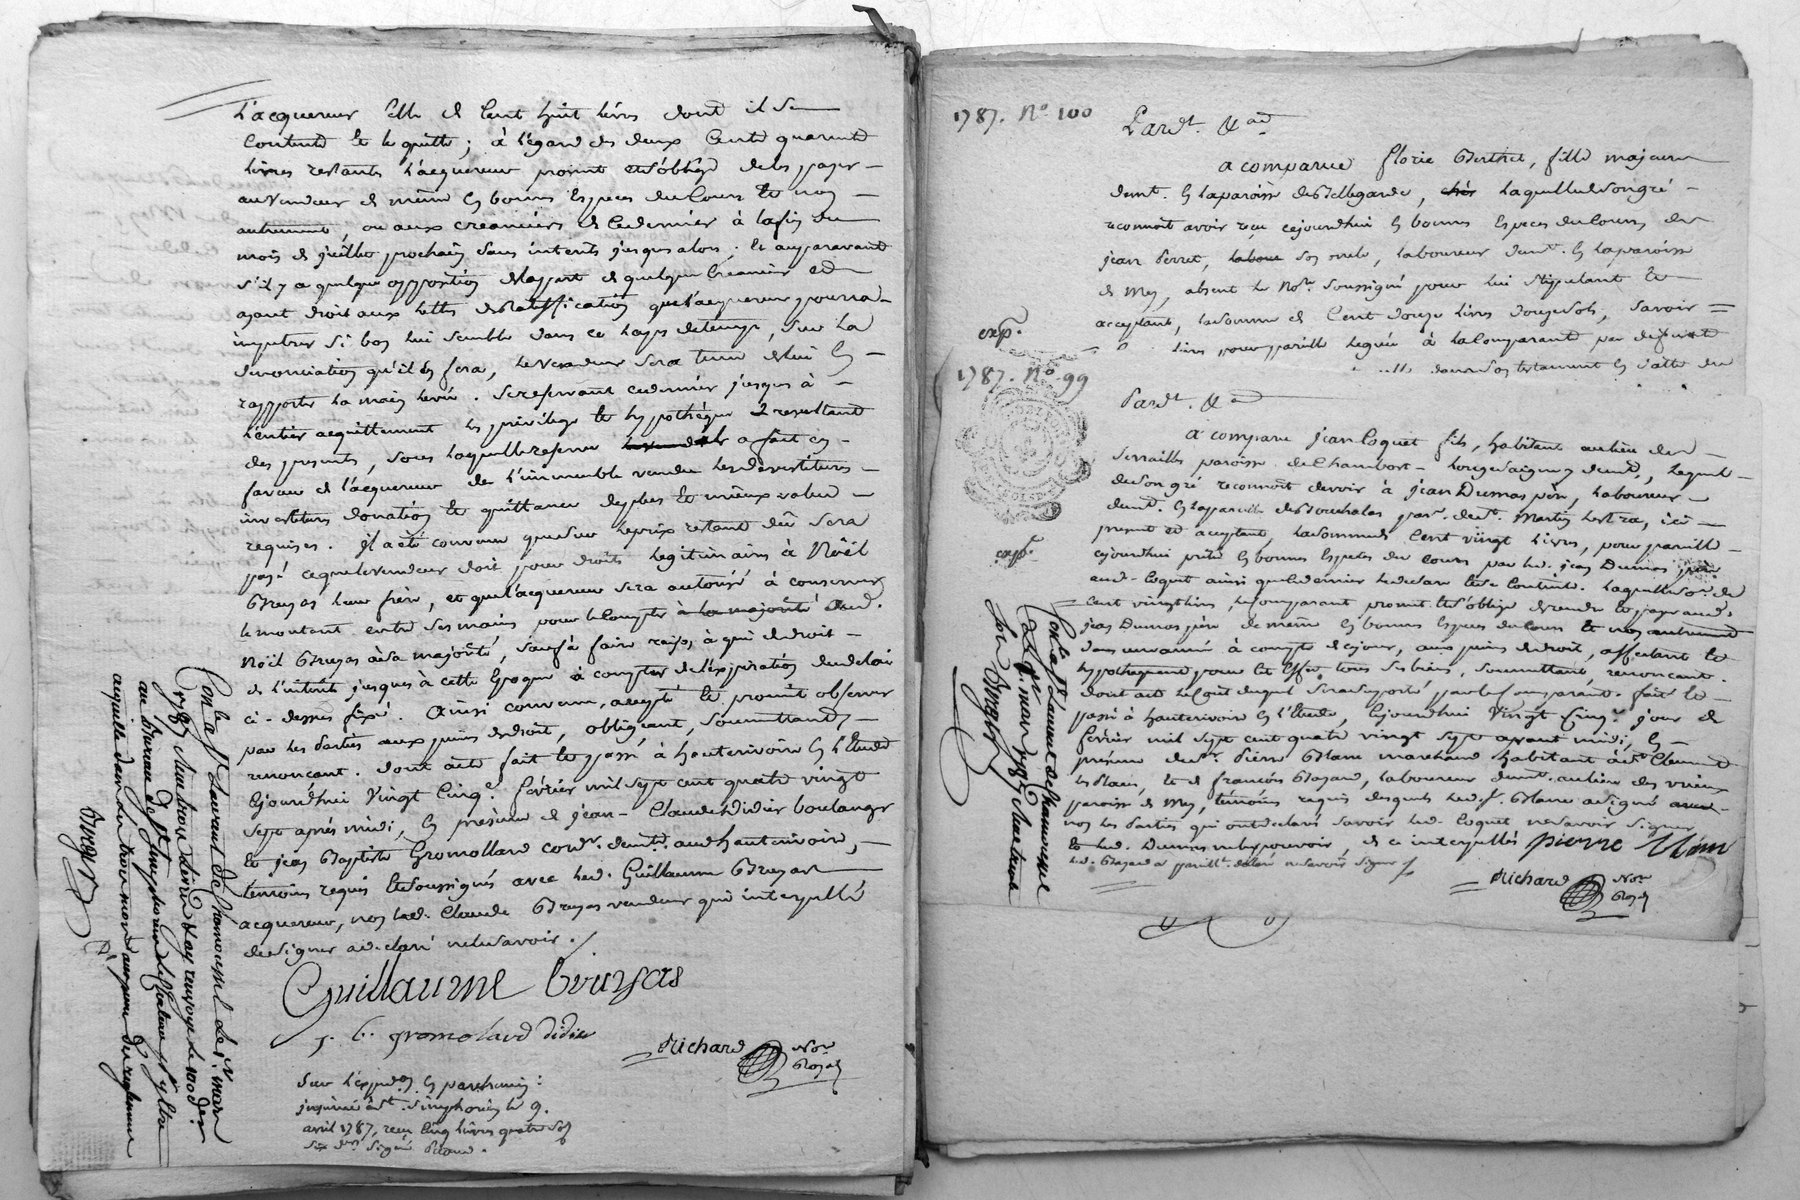 L'acquereur elle de Cent huit livres dont il se
Contente et le quitte ; à l'égard des deux Cents quarante
livres restants l'acquereur promet et s'oblige de les payer
au vendeur de même en bonnes Especes du Cours et non
autrement, ou aux creanciers de ce dernier à la fin du
mois de juillet prochain sans interets jusques alors ; et auparavant
s'il y a quelque opposition de la part de quelque Creancier et
ayant droit aux lettres de Ratification que l'acquereur pourra
impetrer si bon lui semble dans ce laps de temps, sur la
denonciation qu'il en fera, le Vendeur sera tenu de lui en
rapporter la main levée. Se reservant ce dernier jusques à
l'entier acquittement les privilege et hypothéque resultant
des presents, sous laquelle reserve a fait en
faveur de l'acquereur de l'immeuble vendu les devestiture
investiture donation et quittance de plus et mieux value
requises. Il a été convenu que sur le prix restant dû sera
payé ce que le vendeur doit pour droits legitimaires à Noël
Bruyas leur frère, et que l'acquereur sera autorisé à conserver
le montant entre ses mains pour le compte à la majorité dud.
Noël Bruyas à sa majorité, sauf à faire raison à qui de droit
de l'interêt jusques à cette Epoque à compter de l'expiration du delai
ci-dessus fixé. Ainsi convenu, accepté et promit observer
par les Parties aux peines de droit, obligeant, soumettant,
renonçant. dont acte fait et passé à hauterivoire en l'Etude
Cejourd'hui Vingt Cinq. février mil sept cent quatre vingt
sept après midi, en presence de jean-Claude Didier boulanger
et jean Baptiste Gromollard cordr. demts. aud hauterivoire,
temoins requis et soussignés avec led. Guillaume Bruyas
acquereur, non led. Claude Bruyas vendeur qui interpellé
de signer a declaré ne le savoir ./
Guillaume bruyas
j. b. gromolard didier
Richard Nore. Royal
Sur l'expedon. en parchemin :
insinué à St. Simphorien le 9.
avril 1787, reçu Cinq livres quatre sols
six drs. signé
Con.le a St. Laurant de Chamousset Le 1er. mars
1787
au Bureau de St. Simphorien
Berger
1787. No. 100
Pardt. &a
a comparue florie Berthet, fille majeure
demt. en la paroisse de Bellegarde, laquelle de son gré
reconnoit avoir reçu cejourd'hui en bonnes Especes du Cours de
jean Perret, son oncle, laboureur demt. en la paroisse
de Meys, absent le Nore. soussigné pour lui stipulant et
acceptant, la somme de Cent douze livres douze sols, savoir
livres pour pareille leguée à la Comparante par defunt
dans son testament en date du
exp.
1787. No. 99
Pardt. &a
a comparu jean Coquet fils, habitant au lieu de
Serrailles paroisse de Chambost-Longessaigne y demt., lequel
de son gré reconnoit devoir à jean Dumas père, laboureur
demt. en la paroisse par. de St. Martin Lestra, ici
present et acceptant, la somme de Cent vingt livres, pour pareille
cejourd'hui prêté en bonnes Especes du Cours par led. jean Dumas père
aud. Coquet ainsi que ce dernier le declare et s'en contente. laquelle so.e de
Cent vingt livres, le comparant promet et s'oblige de rendre et payer aud.
jean Dumas père de même en bonnes Especes du Cours et non autrement
dans une année à compter de ce jour, aux peines de droit, affectant et
hypothequant pour cet effet tous ses biens, soumettant, renoncant.
dont acte le coût duquel sera supporté par le comparant. fait et
passé à hauterivoire en l'Etude, Cejourd'hui Vingt Cinq. jour de
fevrier mil sept cent quatre vingt sept avant midi, en
présence de sr. Pierre Blanc marchand habitant à St. Clement
les Places, et de françois Bazard, laboureur demt. au lieu des
paroisse de Meys, témoins requis desquels led. sr. Blanc a signé
non les Parties qui ont declaré savoir led. Coquet ne savoir signer
et led. Dumas ne le pouvoir, de ce interpellés pierre Blanc
led. Bazard a pareillt. declaré ne savoir signer ./
Richard Nore. Royal
exp.
Con.le a St. Laurant de Chamousset
Le 1er. mars 1787
Berger